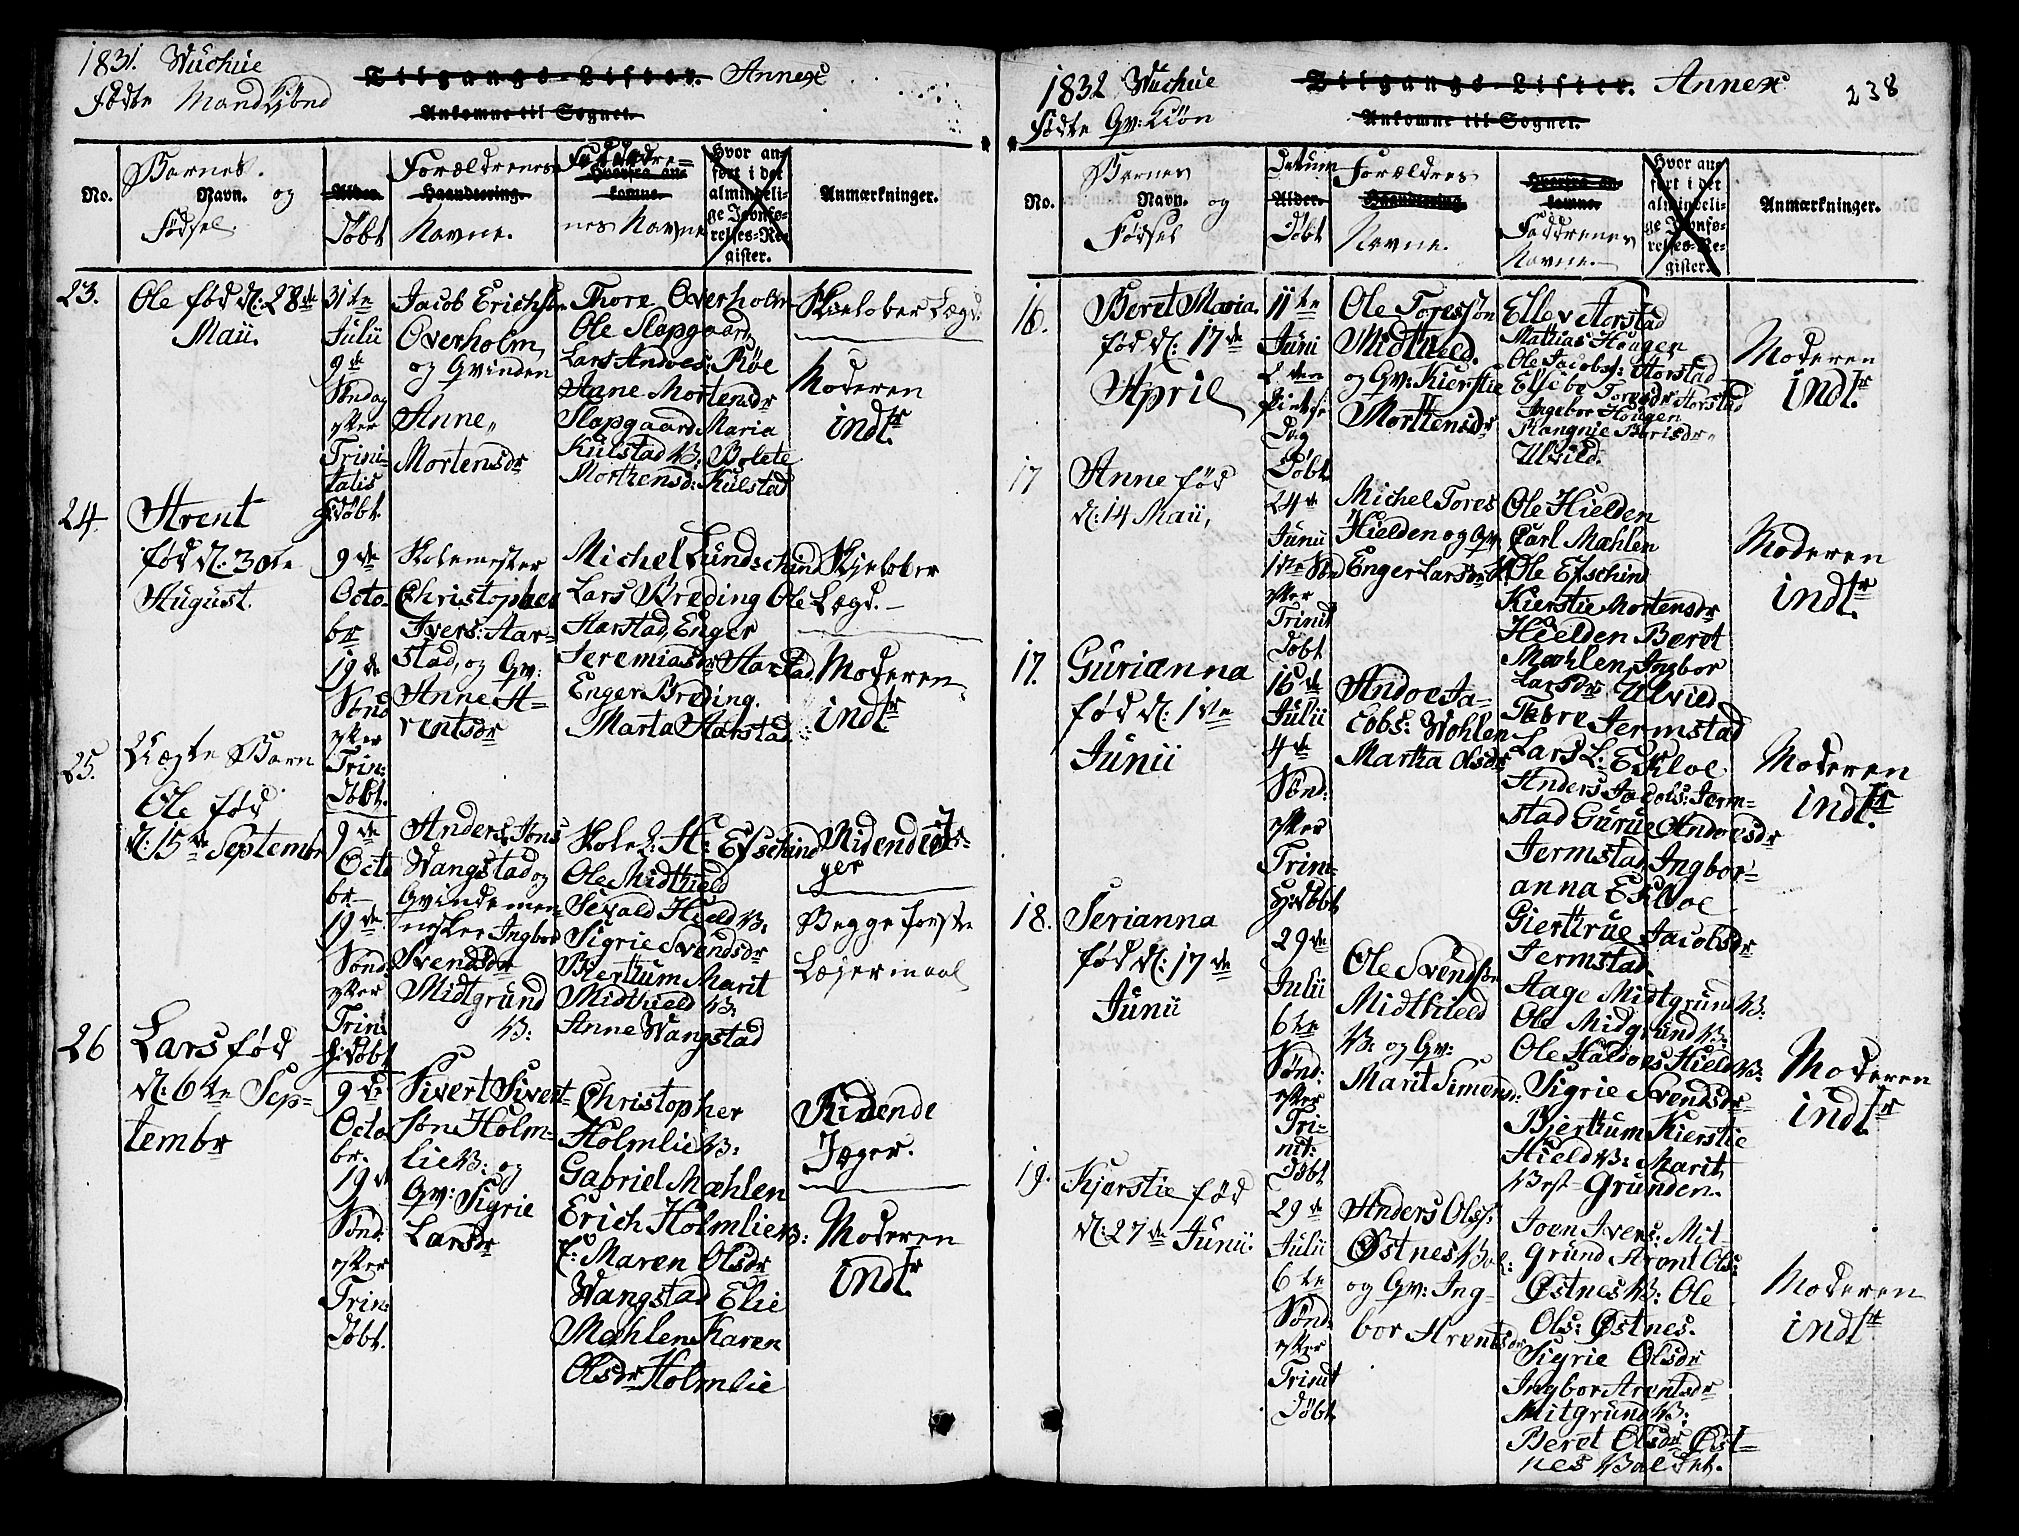 1831. Wuchue
Fødte Mandkjønd
Tilgangs-Lister. Annex
Ankomne til Sognet.
No.
Barnes
Navn. og
Fødsel.
Alder.
Døbt
Forældrenes
Haandtering.
Navne.
Faddre-
Hvorfra an-
komne.
nes Navne
Hvor an-
ført i det
almindeli-
ge Jevnfø-
relses-Re-
gister.
Anmærkninger.
23.
Ole fød d: 28de
Maii.
31te
Julii
9de
Søndag
efter
Trini-
tatis
Døbt.
Jacob Erichsøn
Overholm,
og Qvinden
Anne,
Mortensdr
Thore Overholm
Ole Slapgaard,
Lars Andoes: Røe
Anne Mortensdr
Slapgaard Maria
Kulstad B: Bolete
Mortensd: Kulstad
Skieløber Lægd.
Moderen
indlr.
24.
Arent
fød d. 30te
August.
9de
Octo-
br
19de
Sønd
efter
Trin:
Døbt.
Skolemester
Christopher
Ivers: Aar-
stad, og Qv:
Anne A-
rentsdr
Michel Lundschind
Lars Breding Ole
Aarstad, Enger
Jeremiasdr Aarstad.
Enger Breding.
Marta Aarstad.
Skjeløber
Lægd.
Moderen
indlr
25.
Uægte Barn
Ole fød
d: 15de Septembr
9de
Octo
br
19de
Sønd:
efter
Trin:
Døbt
Anders Jøns
Wangstad og
Qvindemen-
nesker Ingbor
Svendsdr
Midtgrund
B:
Skolel: H: Efschind
Ole Midthield
Sevald Hield B:
Sigrie Svendsdr
Bierthum Marit
Midthield B:
Anne Wangstad
Ridende Jæ-
ger
Begge første
Lejermaal
26
Lars fød
d: 6te Sep-
tembr
9de
Octo
br.
19de
Sønd:
efter
Trin:
Døbt.
Sivert Sivert-
søn Holm-
lie B: og
Qv: Sigrie
Larsdr
Christopher
Holmlie B:
Gabriel Mæhlen
Erich Holmlie B:
F: Maren Olsdr
Wangstad Elie
Mæhlen Karen
Olsdr Holmlie
Ridende
Jæger.
Moderen
indlr.
1832 Wuchue
Fødte Qv: Kiøn
Tilgangs-Lister. Annex
Ankomne til Sognet.
238
No.
Barnes
Navn. og
Fødsel
Datum
Alder.
Døbt
Forældres
Haandtering.
Navne.
Hvorfra an-
komne.
Faddrenes
Navne.
Hvor an-
ført i det
almindeli-
ge Jevnfø-
relses-Re-
gister.
Anmærkninger.
16.
Beret Maria.
fød d: 17de
April
11te
Juni
2den
Pintse
Dag
Døbt
Ole Toresøn
Midthield.
og Qv: Kierstie
Morttensdr
Ellev Aorstad
Mathias Hougen
Ole Jacobs: Aorstad
Elsebe Toresdr Aorstad
Ingebor Hougen
Rangnie
Ulvild.
Moderen
indlr.
17
Anne fød
d: 14 Maii,
24de
Junii
1ste Sønd
efter
Trinit
Døbt
Michel Tores
Hielden og Qv
Enger Larsdr
Ole Hielden
Carl Mæhlen
Ole Efschind
Kierstie Mortensdr
Hielden Beret
Mæhlen, Ingbor
Larsdr Ulvild
Moderen
indlr.
17.
Gurianna
fød d: 1ste
Junii
16de
Julii
4de
Sønd:
efter
Trini-
Døbt
Andoe Ja-
cobs: Wohlen
Martha Olsdr
Tore Jermstad
Lars L: Ekloe
Anders Jacobs: Jerm-
stad Gurue Andoesdr
Jermstad, Ingbor-
anna Ekloe
Gierttrue Jacobsdr
Jermstad.
Moderen
indlr.
18.
Serianna
fød d: 17de
Junii
29de
Julii
6te
Sønd:
efter
Tri-
nit:
Døbt
Ole Svendsøn
Midthield
B: og Qv:
Marit Simensd:
Aage Midtgrund B:
Ole Midgrund B:
Ole Haldors Hield B:
Sigrie Svendsdr
Bjerthum Kierstie
Hield B: Marit
Vest-Grunden.
Moderen
indlr
19.
Kjerstie fød
d: 27de Junii.
29de
Julii
6te
Sønd:
efter
Trinit
Døbt
Anders Olss:
Østnes Bal:
og Qv: Ing-
bor Arentsdr
Joen Ivers: Mit-
grund Arent Ols:
Østnes B: Ole
Ols: Østnes.
Sigrie Olsdr
Ingbor Arentsdr
Mitgrund B:
Beret Olsdr Øst-
nes Balsnt.
Moderen
indlr